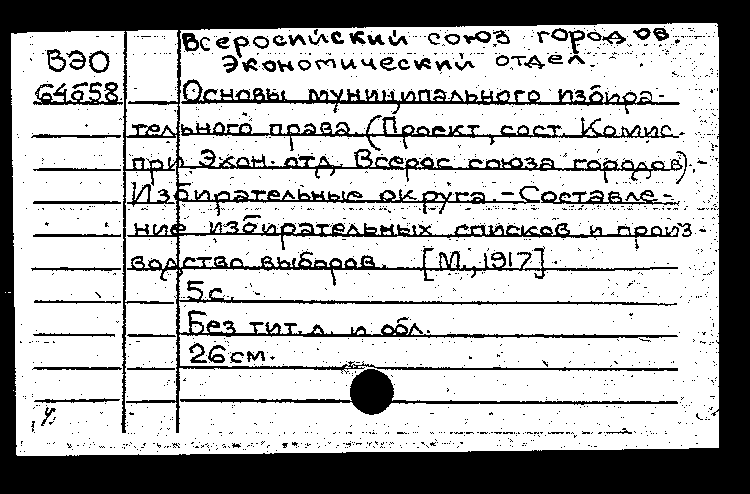 Всеросийский союз городов.
Экономический отдел.
ВЭО
64658
Основы муниципального избира-
тельного права. (Проект, сост. Комис.
при Экон. отд. Всерос. союза городов).-
Избирательные округа. - Составле-
ние избирательных списков и произ-
водство выборов. [М., 1917].
5с.
Без тит. л. и обл.
26 см.